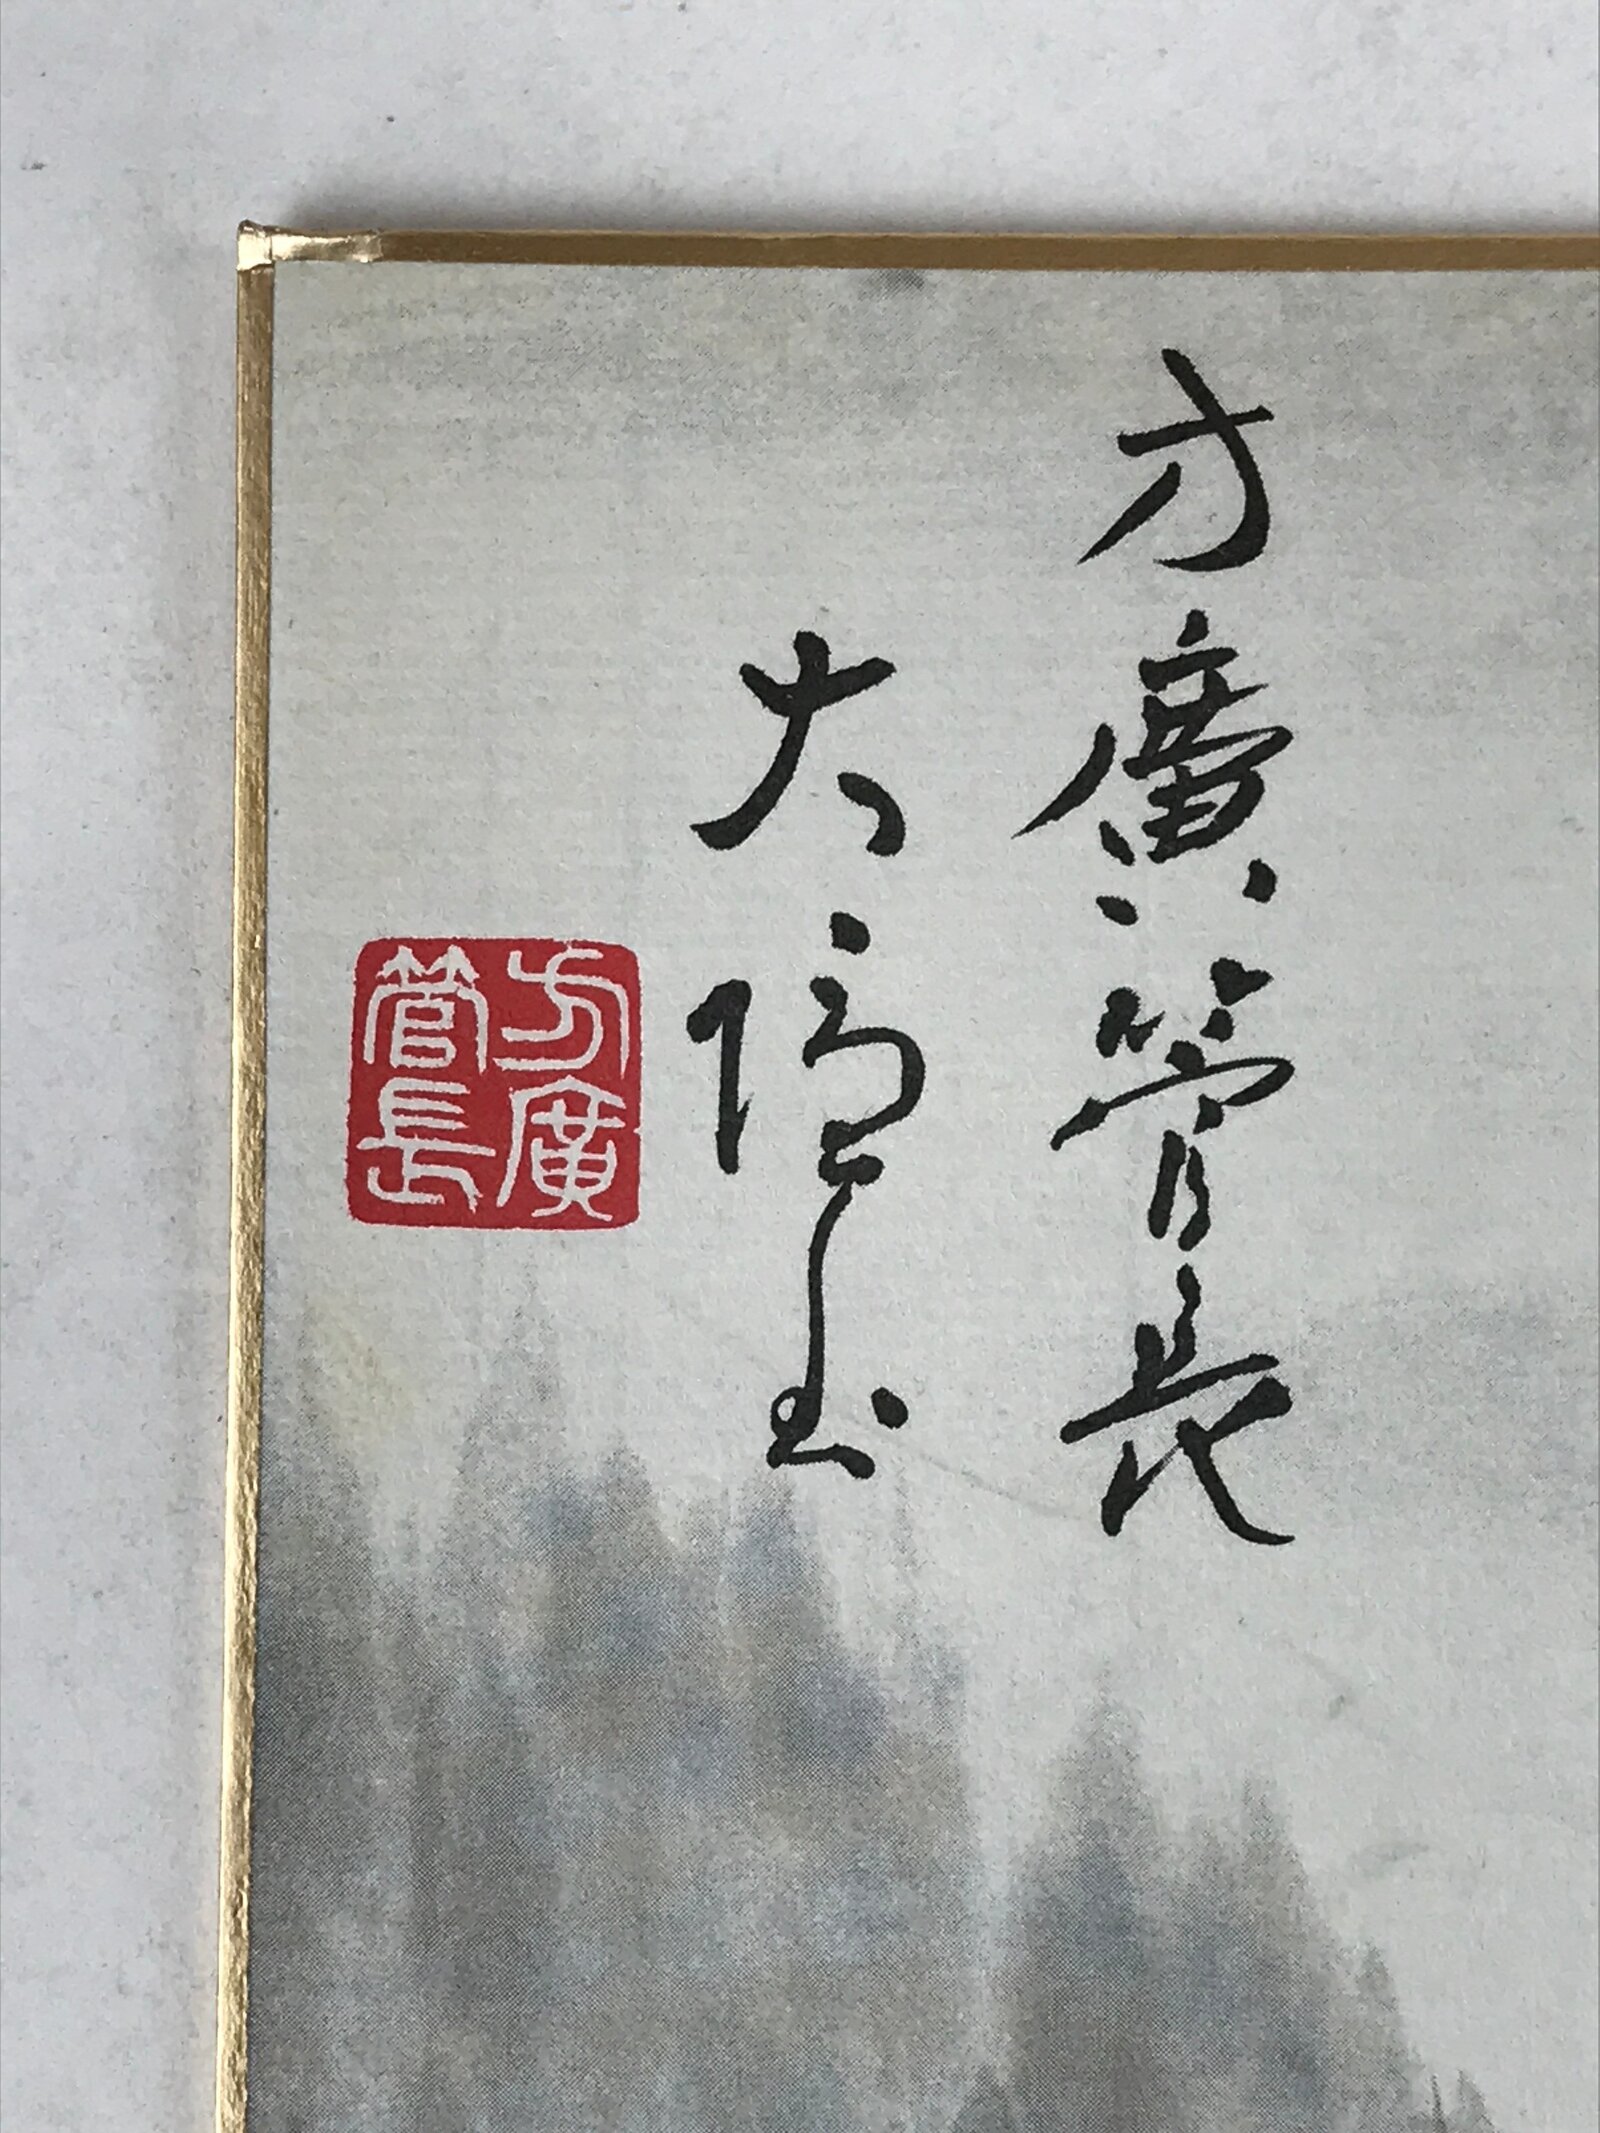 方廣管長
大隠書
方廣
管長